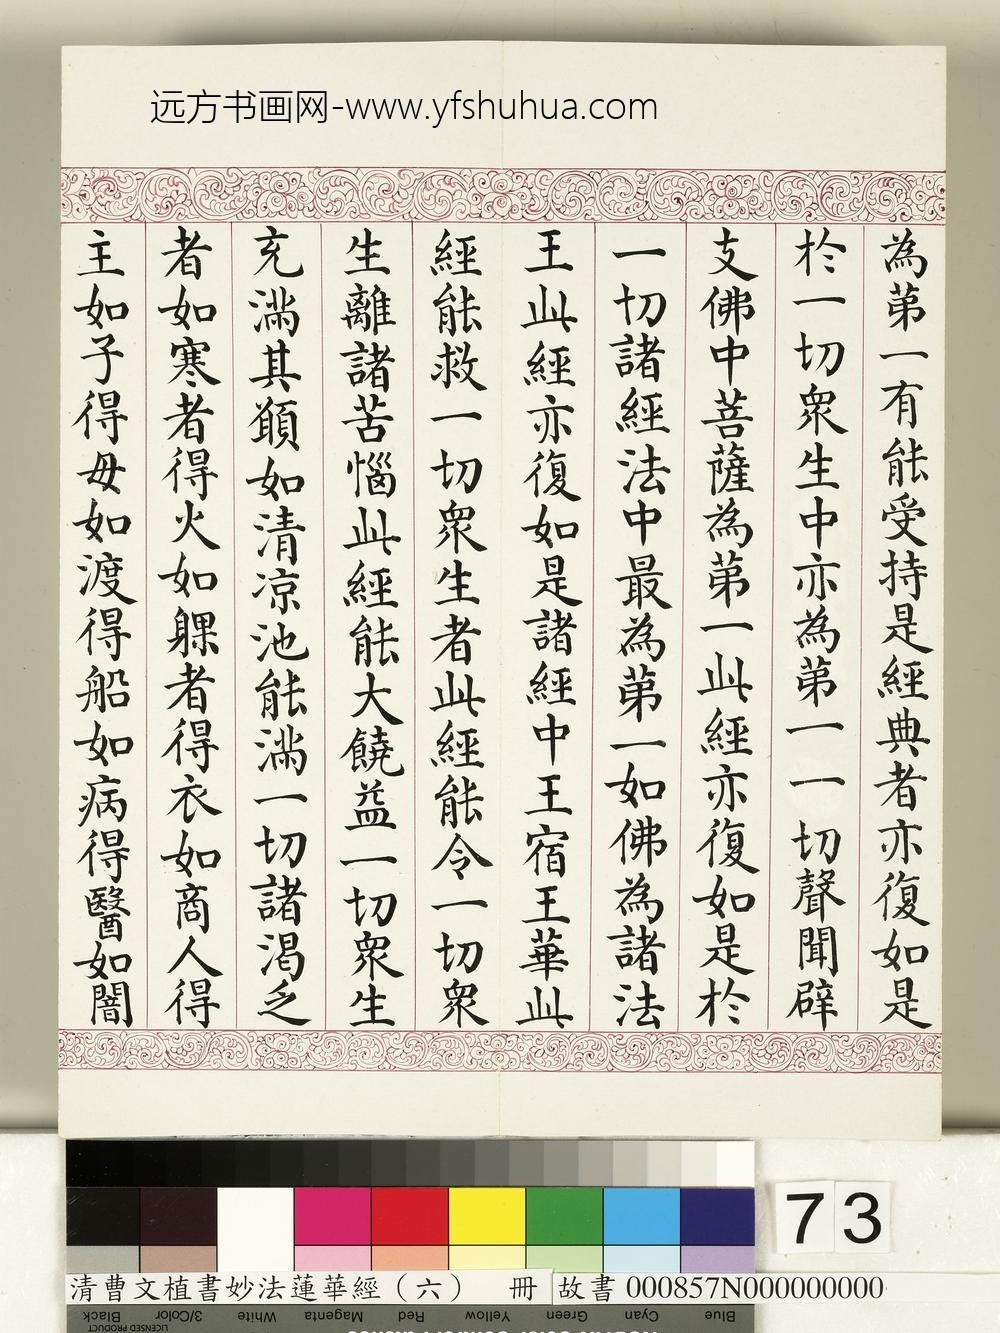 远方书画网-www.yfshuhua.com
為第一有能受持是經典者亦復如是
於一切眾生中亦為第一一切聲聞辟
支佛中菩薩為第一此經亦復如是於
一切諸經法中最為第一如佛為諸法
王此經亦復如是諸經中王宿王華此
經能救一切眾生者此經能令一切眾
生離諸苦惱此經能大饒益一切眾生
充滿其願如清凉池能滿一切諸渴乏
者如寒者得火如躶者得衣如商人得
主如子得母如渡得船如病得醫如闇
73
清曹文植書妙法蓮華經（六） 冊 故書 000857N000000000
Black 3/Color White Magenta Red Yellow Green Cyan Blue
LICENSED PRODUCT